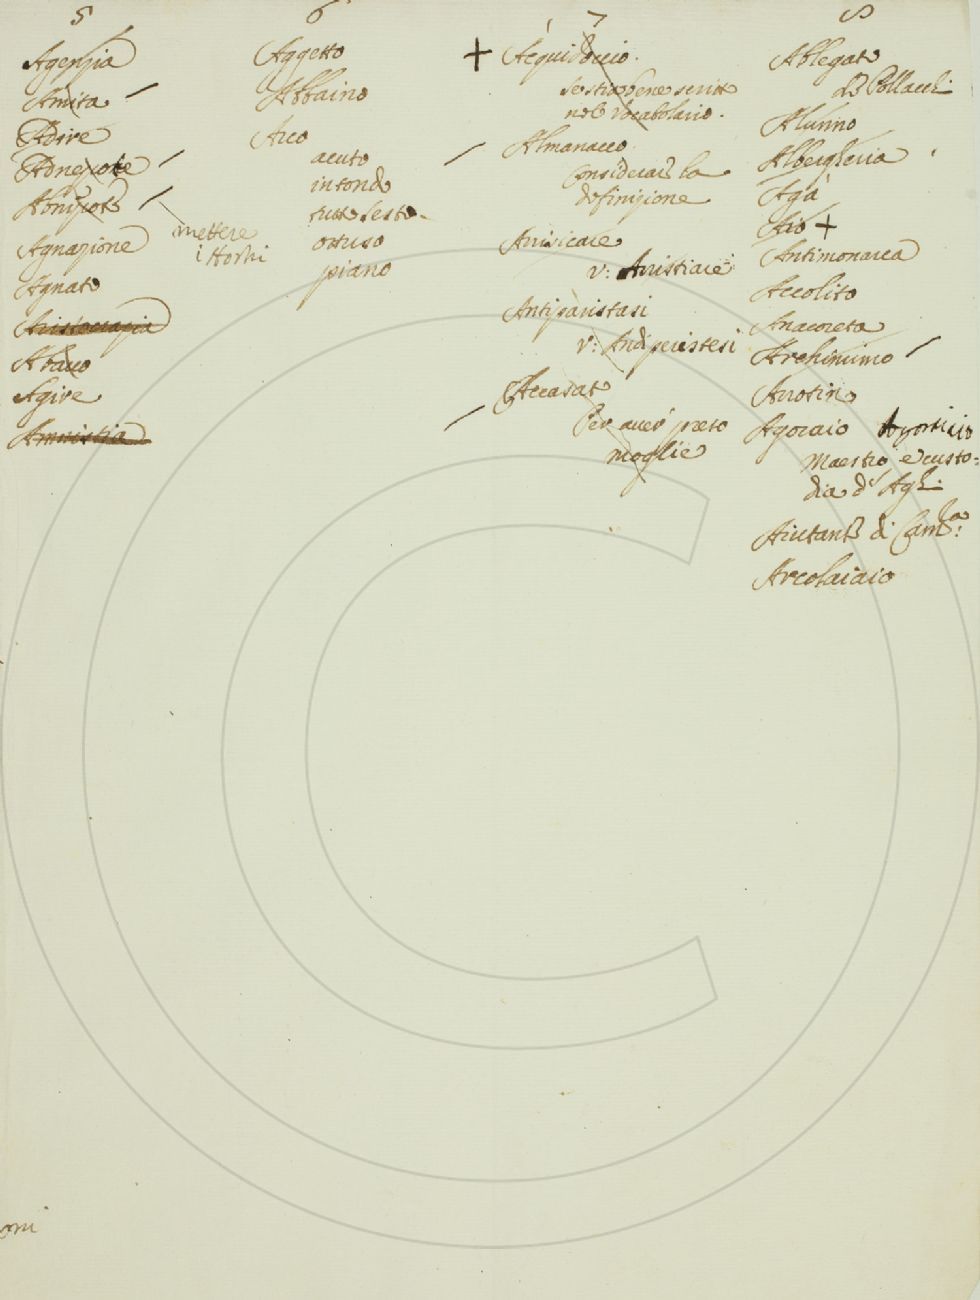 5
Agenzia
Amita
Adire
Adnepote
Abnipote
mettere
i Hoshi
Agnazione
Agnato
Aristocrazia
Abavo
Agire
Amnistia
6
Aggetto
Abbaino
Arco
acuto
intondo
tutto sesto
ottuso
piano
7
+ Acquidoccio
se stia bene scritto
nel Vocabolario.
Almanacco
Considerarsi la
definizione
Anisicare
v: Aristiare
Antiparistasi
v: Andiperistesi
Accasato
Per aver preso
moglie
8
Ablegato
di Pollacchi
Alunno
Albergheria
Agà
Aio +
Antimonarca
Accolito
Anacoreta
Archimimo
Arrotino
Agoraio
Maestro e custo=
dia d' Aghi
Aiutante di Cam:ra
Arcolaiaio